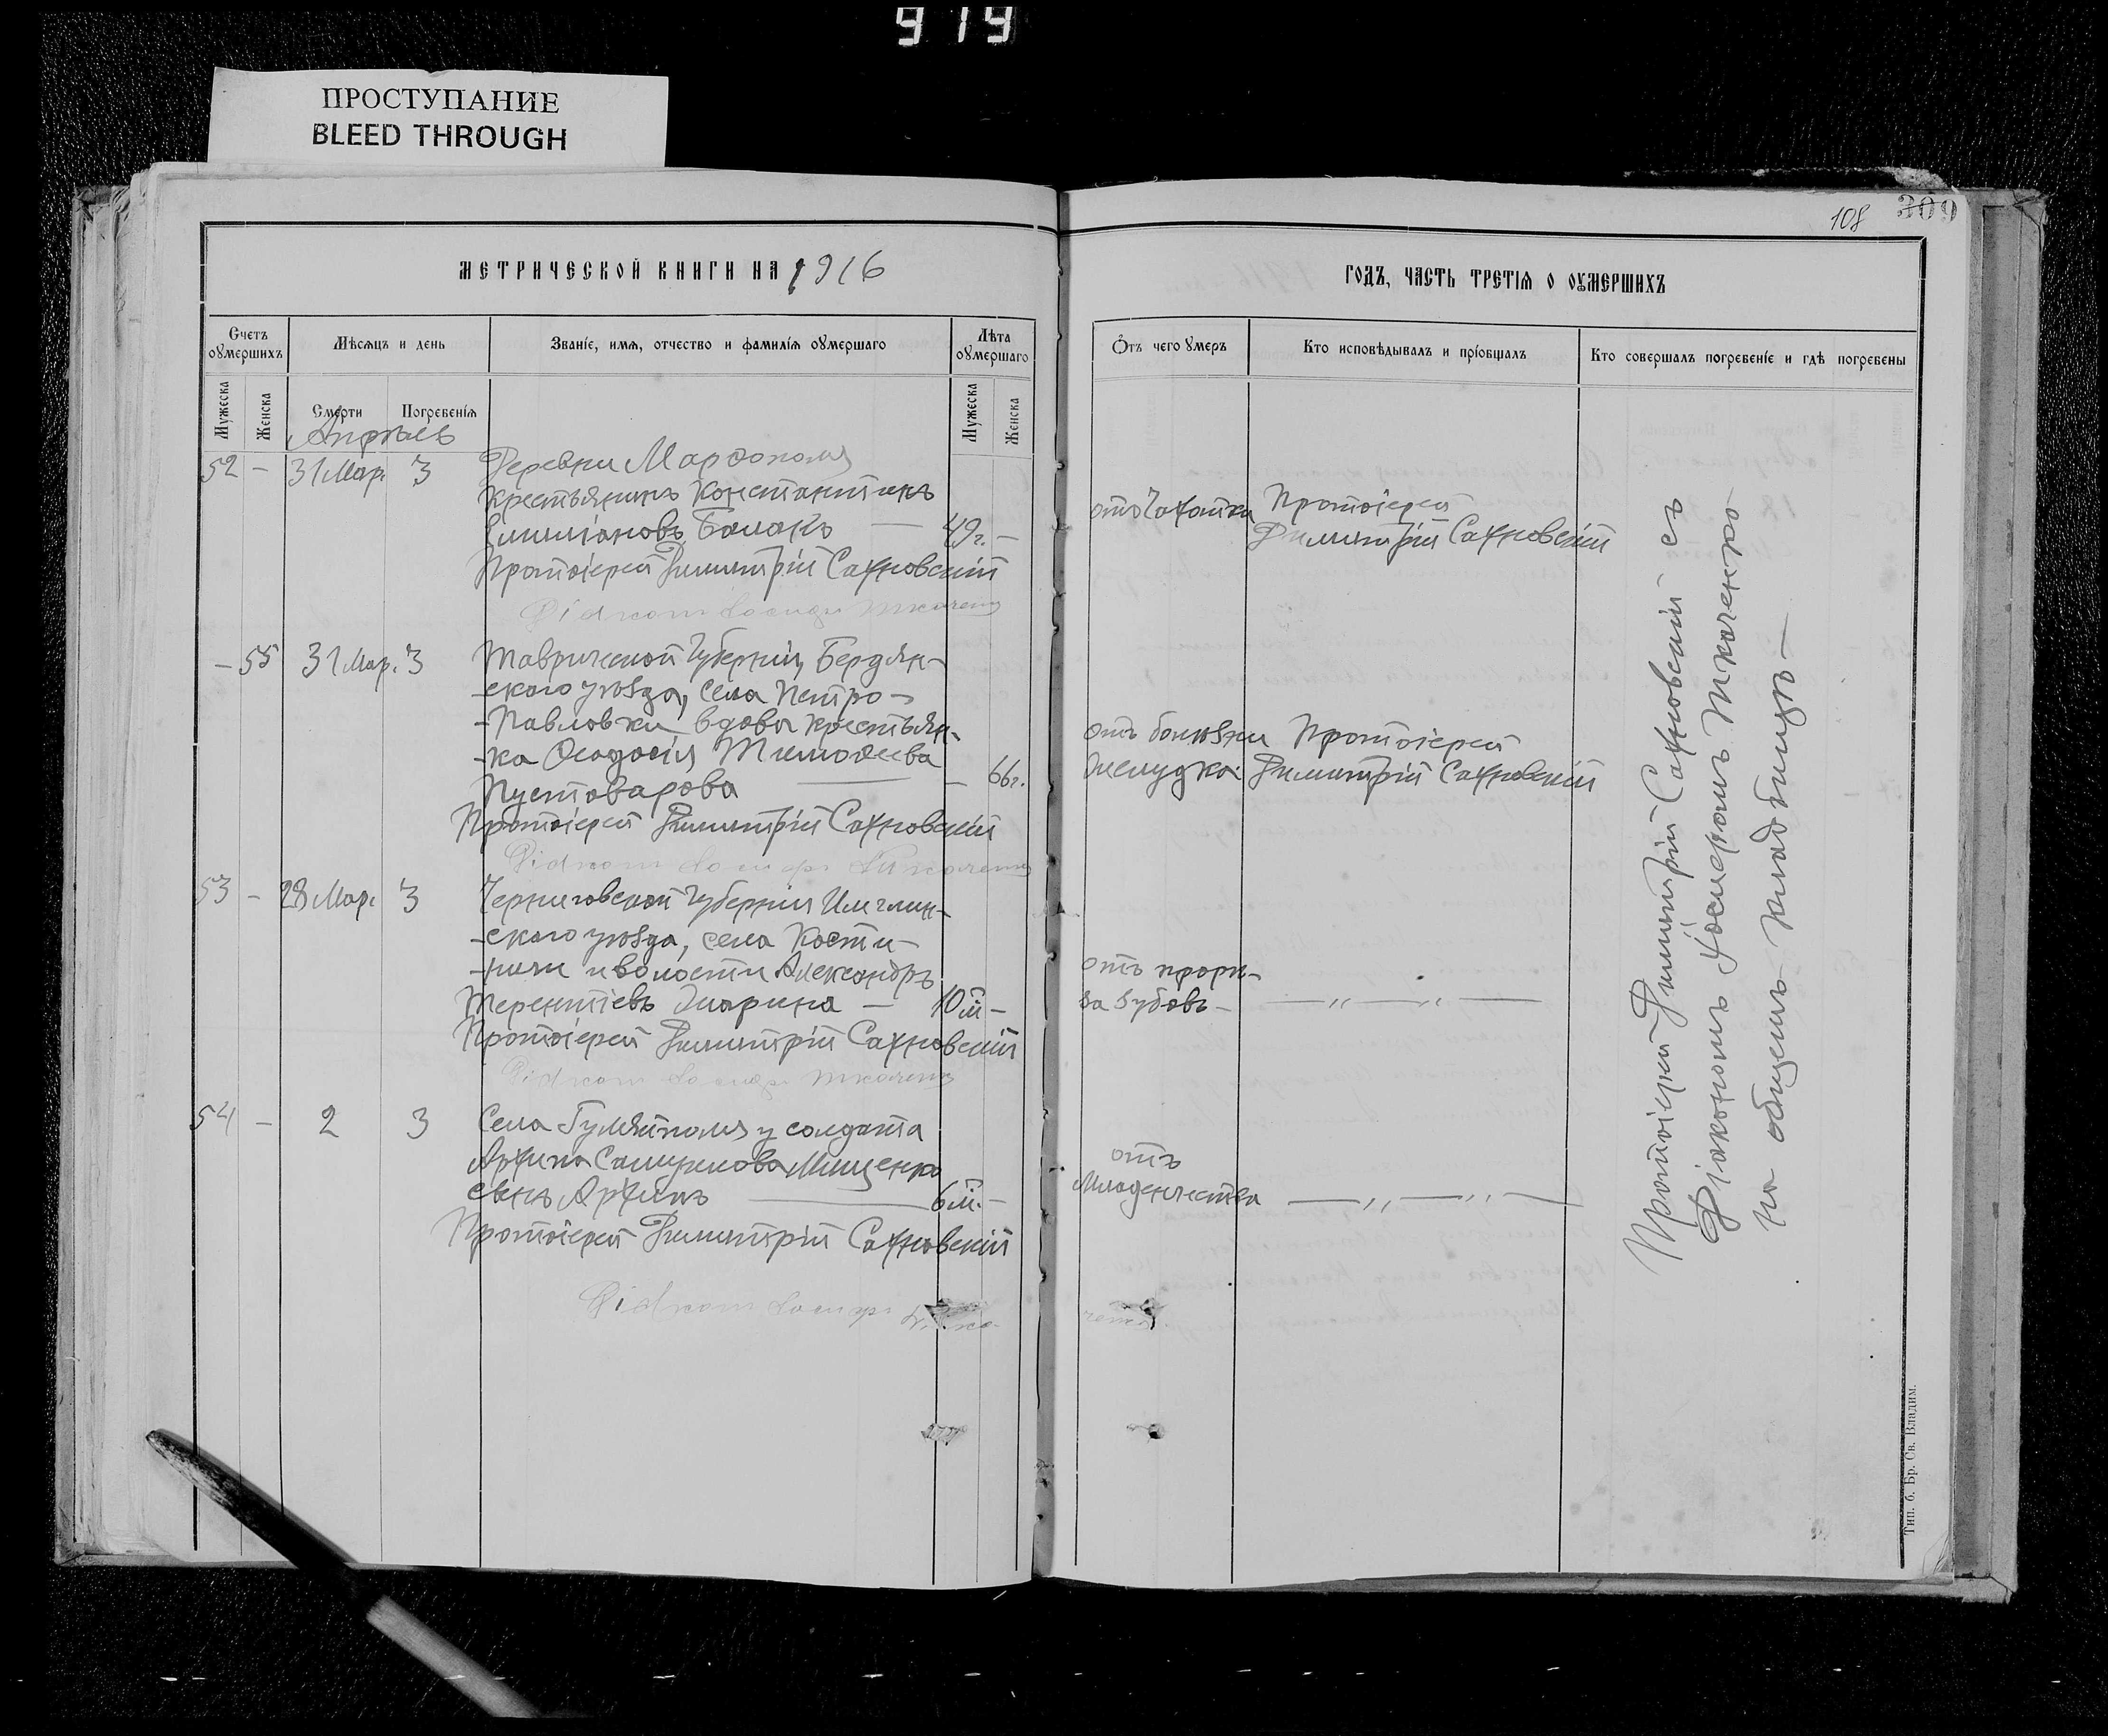 919
ПРОСТУПАНИЕ
BLEED THROUGH
МЕТРИЧЕСКОЙ КНИГИ НА 1916
Счетъ оумершихъ
Мѣсяцъ и день
Званіе, имя, отчество и фамилія оумершаго
Лѣта оумершаго
Мужеска
Женска
Смерти
Погребенія
Мужеска
Женска
Апрѣль
52 – 31 Мар. 3 Деревни Марфополя
крестьянинъ Константинъ
Емиліановъ Балакъ — 49 г. –
Протоіерей Димитрій Сахновскій
Діаконъ Іосифъ Ткаченко
– 55 31 Мар. 3 Таврической Губерніи, Бердян-
-скаго уѣзда, села Петро-
-Павловки вдова крестьян-
-ка Феодосія Тимофеева
Пустоварова — – 66 г.
Протоіерей Димитрій Сахновскій
Діаконъ Іосифъ Ткаченко
53 – 28 Мар. 3 Черниговской Губерніи
-скаго уѣзда, села Кости-
-ничи и волости Александръ
Терентіевъ — 10 м –
Протоіерей Димитрій Сахновскій
Діаконъ Іосифъ Ткаченко
54 – 2 3 Села Гуляйполя у солдата
Архипа Мищенко
сынъ Архипъ — 6 м. –
Протоіерей Димитрій Сахновскій
Діаконъ Іосифъ Тка-
ченко
108
309
ГОДЪ, ЧАСТЬ ТРЕТІЯ О ОУМЕРШИХЪ
Отъ чего умеръ
Кто исповѣдывалъ и пріобщалъ
Кто совершалъ погребеніе и гдѣ погребены
отъ Чахотки Протоіерей
Димитрій Сахновскій
отъ болѣзни Протоіерей
желудка Димитрій Сахновскій
отъ прорѣ-
за зубовъ – — „ — „ —
отъ
Младенчества — „ — „ —
Протоіерей Димитрій Сахновскій съ
Діакономъ Іосифомъ Ткаченко
на общемъ кладбищѣ —
Тип. б. Бр. Св. Владим.